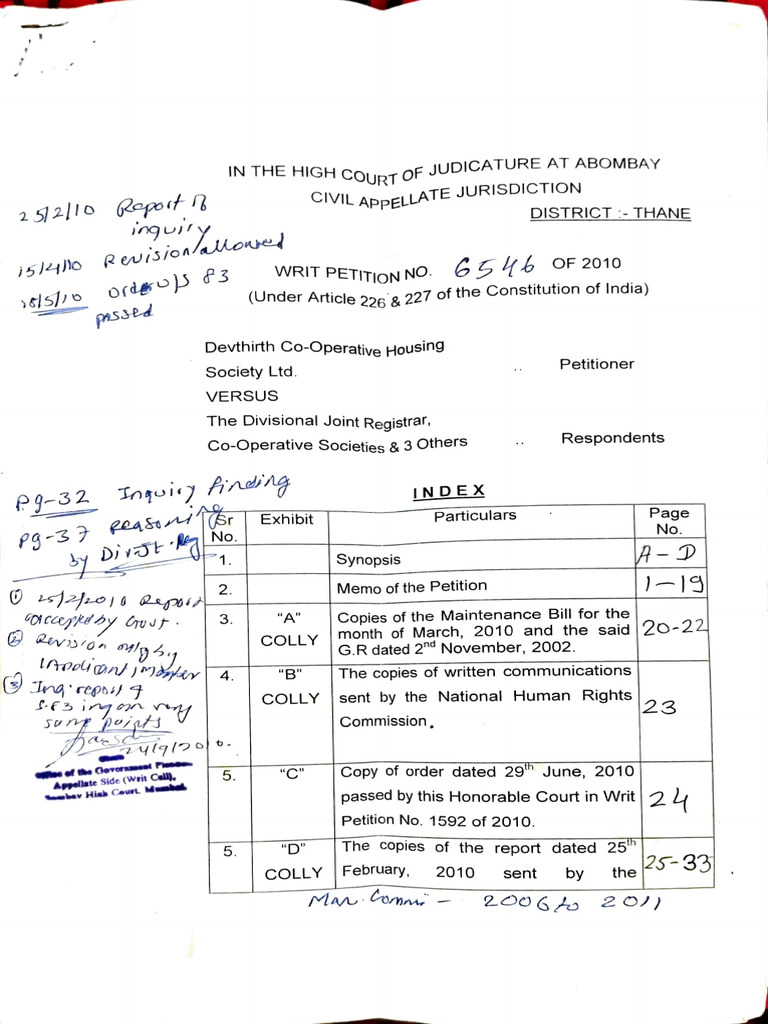 IN THE HIGH COURT OF JUDICATURE AT ABOMBAY
CIVIL APPELLATE JURISDICTION
DISTRICT :- THANE
25/2/10 Report of
inquiry
15/4/10 Revision allowed
18/5/10 order u/s 83
passed
WRIT PETITION NO. 6546 OF 2010
(Under Article 226 & 227 of the Constitution of India)
Devthirth Co-Operative Housing
Society Ltd. .. Petitioner
VERSUS
The Divisional Joint Registrar,
Co-Operative Societies & 3 Others .. Respondents
Pg-32 Inquiry finding
Pg-37 Reasoning
by Div. Jt. Reg
① 25/2/2010 Report
accepted by Govt.
② Revision only by
1 Applicant, Member
③ Inq. report &
on very
same points
24/9/2010.
Office of the Government Pleader
Appellate Side (Writ Cell),
Bombay High Court, Mumbai
INDEX
Sr No. Exhibit Particulars Page No.
1. Synopsis A-D
2. Memo of the Petition 1-19
3. "A" COLLY Copies of the Maintenance Bill for the
month of March, 2010 and the said
G.R dated 2nd November, 2002. 20-22
4. "B" COLLY The copies of written communications
sent by the National Human Rights
Commission. 23
5. "C" Copy of order dated 29th June, 2010
passed by this Honorable Court in Writ
Petition No. 1592 of 2010. 24
5. "D" COLLY The copies of the report dated 25th
February, 2010 sent by the 25-33
Man. Commi - 2006 to 2011